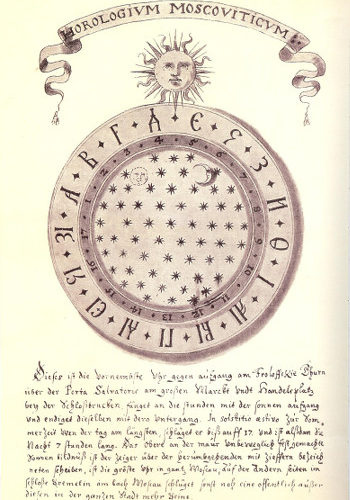 HOROLOGIVM MOSCOVITICVM
А В Г Д Е Ѕ З И Ѳ І АІ ВІ ГІ ДІ ЕІ ЅІ ЗІ
1 2 3 4 5 6 7 8 9 10 11 12 13 14 15 16 17
Dieser ist die Vornembste Uhr gegen aufgang am Froloffskÿ Thurn
uber der Porta Salvatoris am großen Marckt undt Handelsplatz
bey der Schloßbrucken, fänget an die stunden mit der sonnen aufgang
und endiget dieselben mit dero Untergang. In solstitio æstivo zur Som=
merzeit wen der tag am längsten, schläget er biß auff 17. und ist alsdan die
Nacht 7 stunden lang. Das obere an der maur unbeweglich fest gemachte
Sonnen bildnuß ist der Zeiger uber der herumbgehenden mit Zieffern bezeich
neten scheiben, ist die größte uhr in gantz Moscau, auf der Andern seiten im
schloße Cremelin am bach Moscau schläget sonst noch eine außer
diesen in der gantzen Stadt mehr keine.